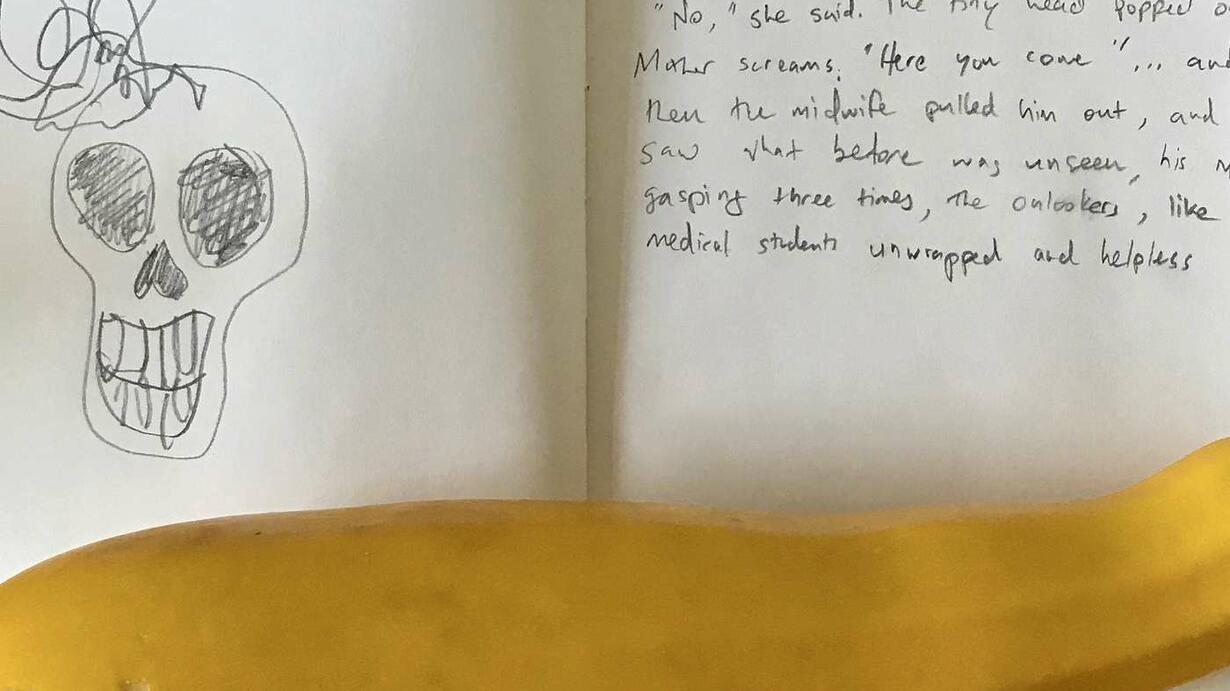 "No," she said. The tiny head popped
Mother screams. "Here you come"... and
then the midwife pulled him out, and
saw what before was unseen, his
gasping three times, the onlookers, like
medical students unwrapped and helpless